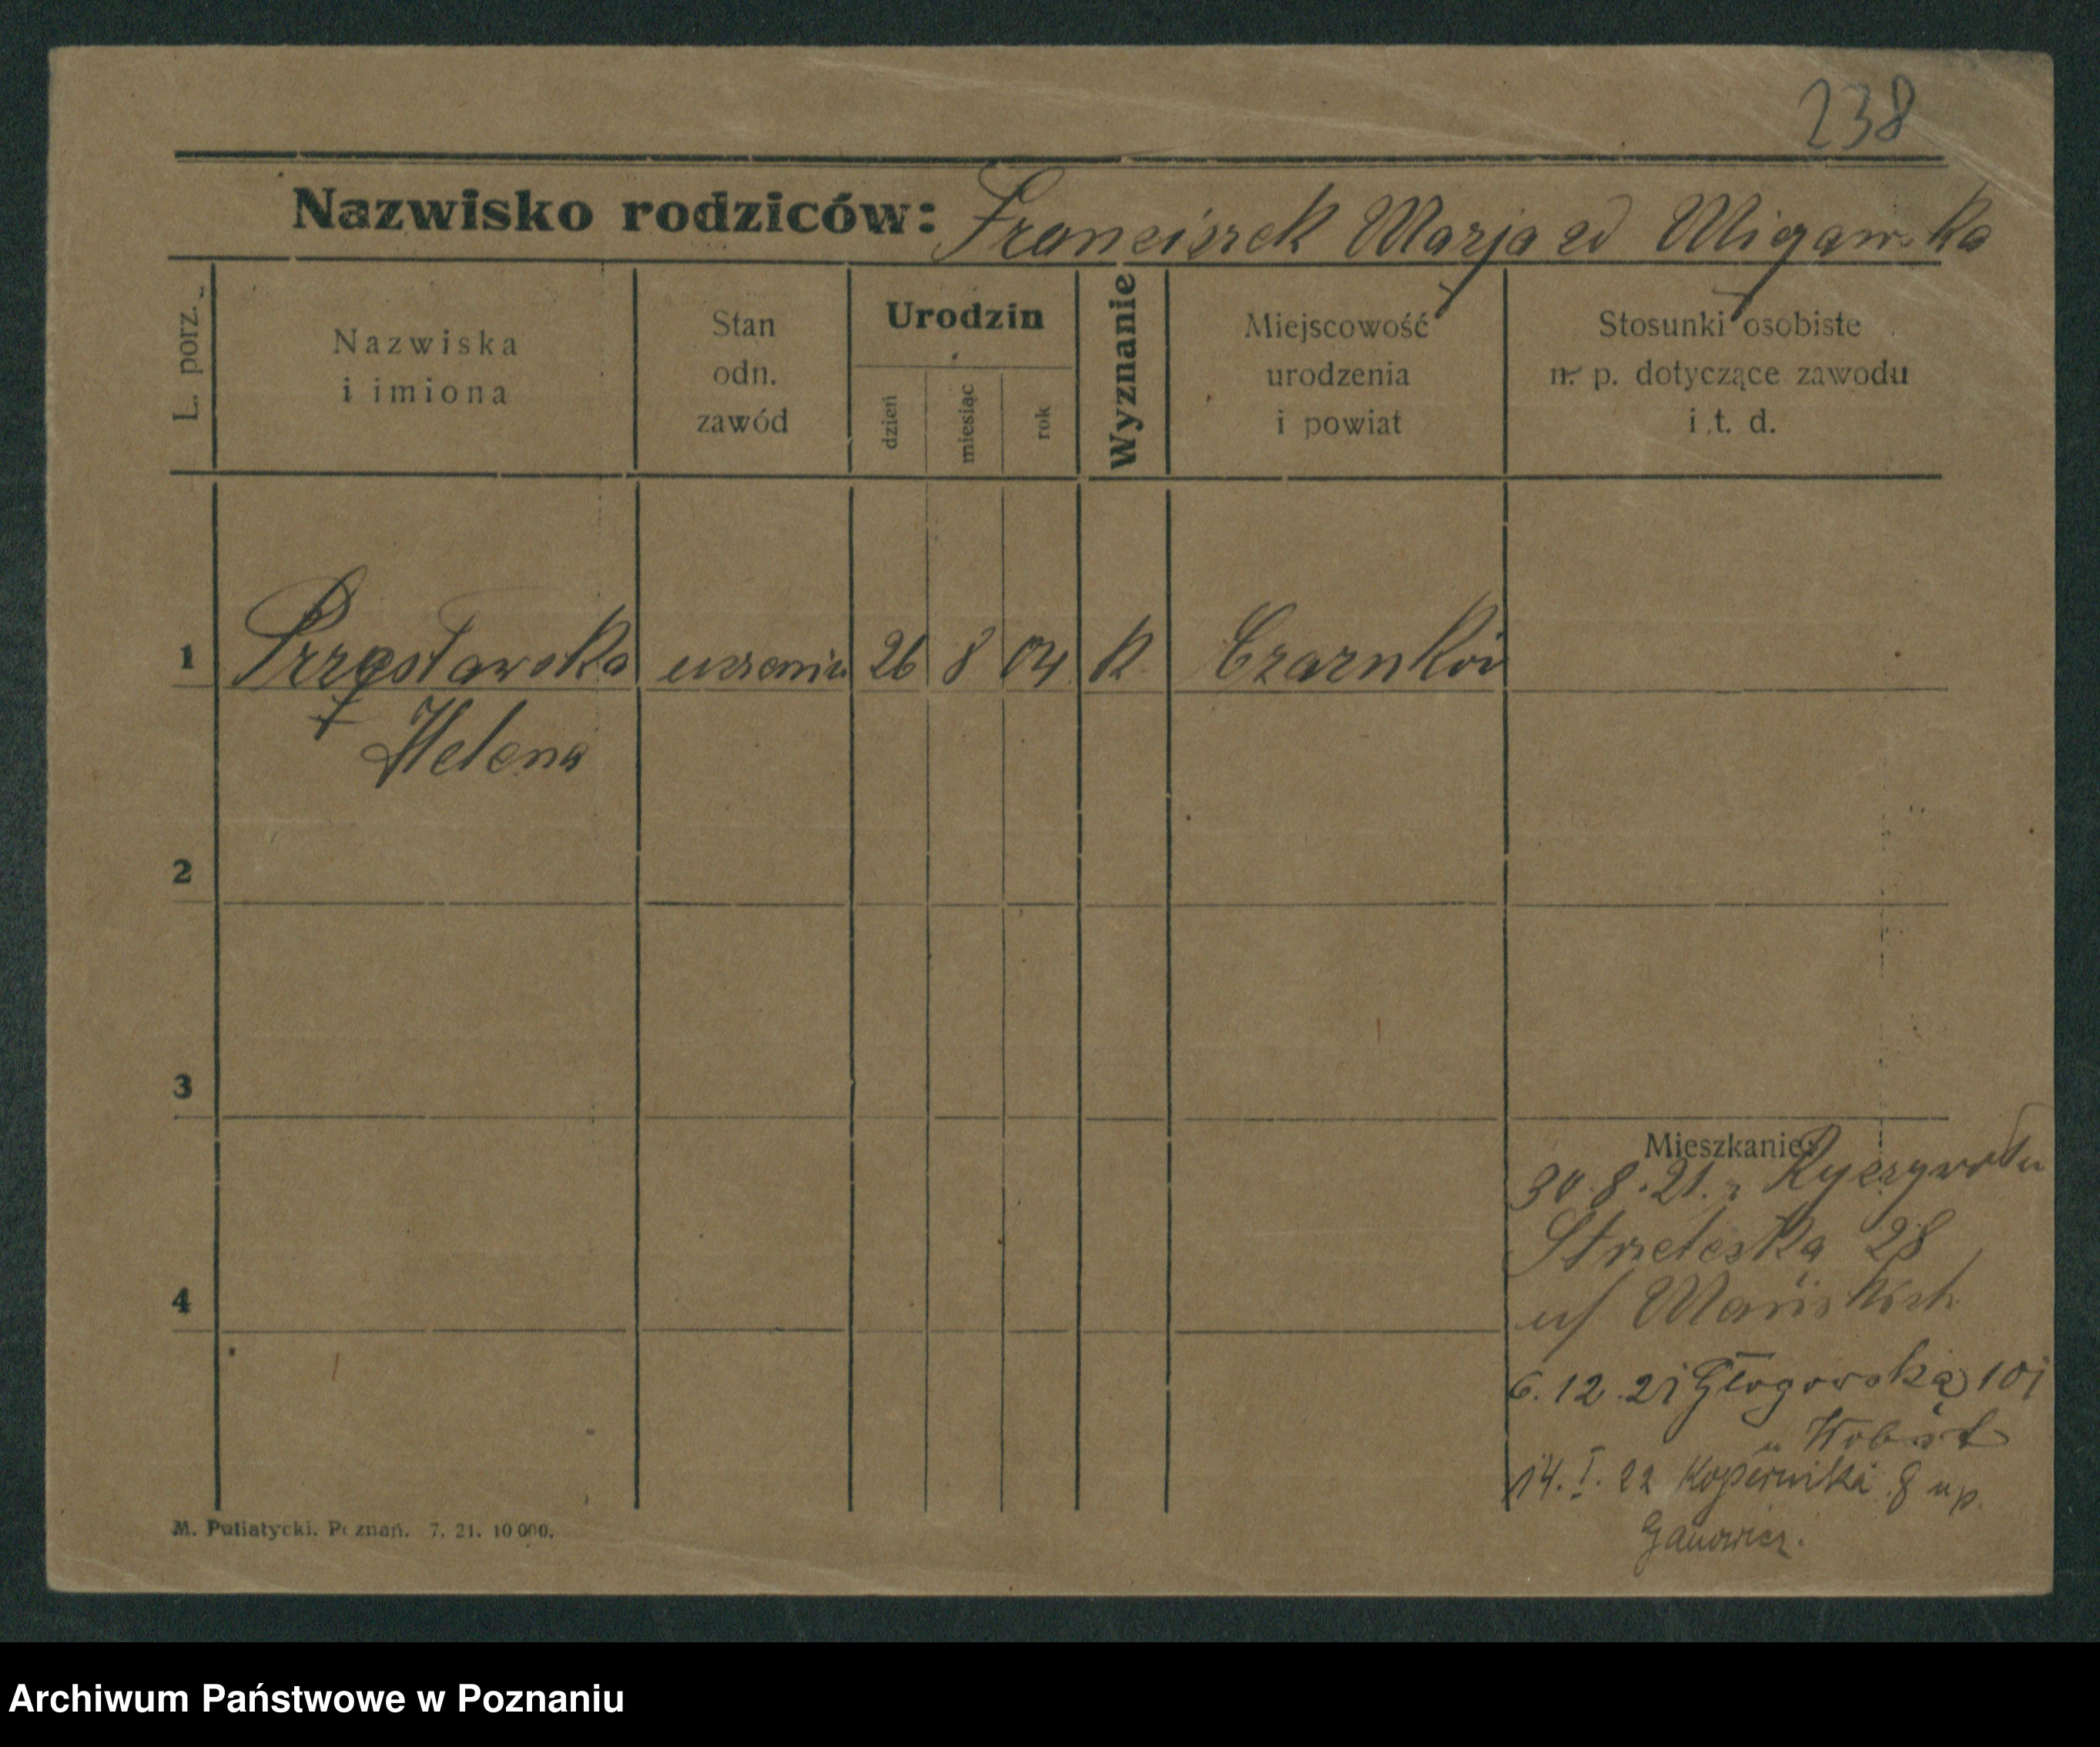 238
Nazwisko rodziców: Franciszek Marja zd Migawska
L. porz.
Nazwiska
i imiona
Stan
odn.
zawód
Urodzin
dzień
miesiąc
rok
Wyznanie
Miejscowość
urodzenia
i powiat
Stosunki osobiste
n. p. dotyczące zawodu
i t. d.
1 Przesławska uczenica 26 8 04 k Czarnków
Helena
2
3
Mieszkanie:
30.8.21. z Ryczywołu
Strzelecka 28
4
u/
6.12.21 Głogowska 101
u
14. I. 22 Kopernika 8 u p.
Ganowicz.
M. Putiatycki. Poznań. 7. 21. 10 000.
Archiwum Państwowe w Poznaniu